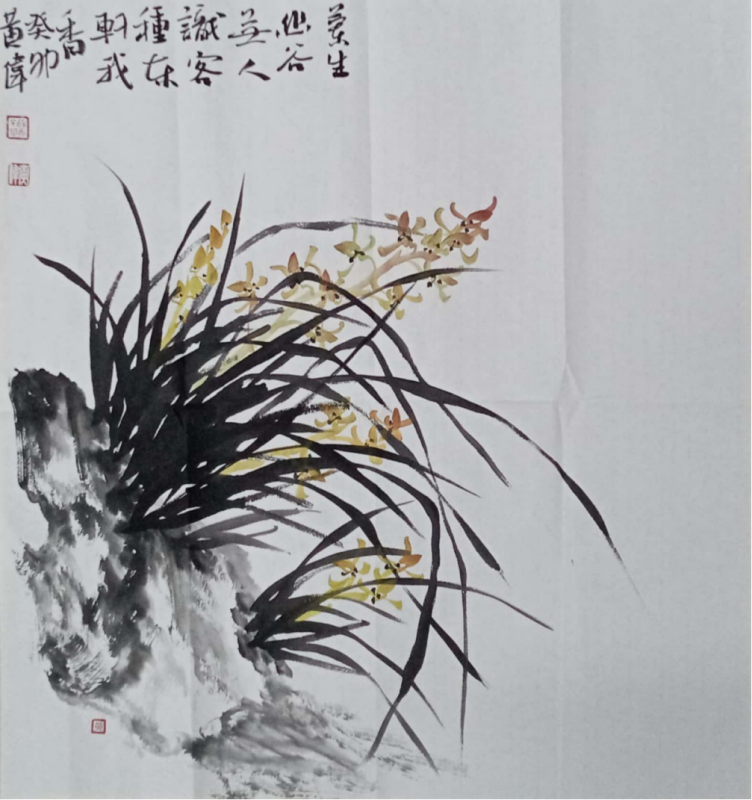 蘭生
幽谷
無人
識客
種東
軒我
香
癸卯
黃偉